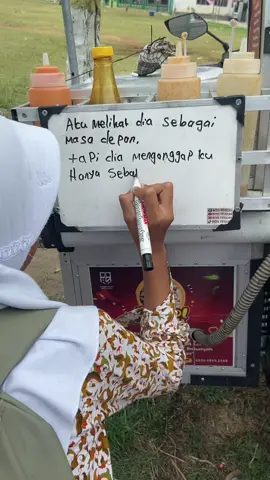 Aku Melihat dia Sebagai
Masa depan.
tapi dia menganggap ku
Hanya Seba